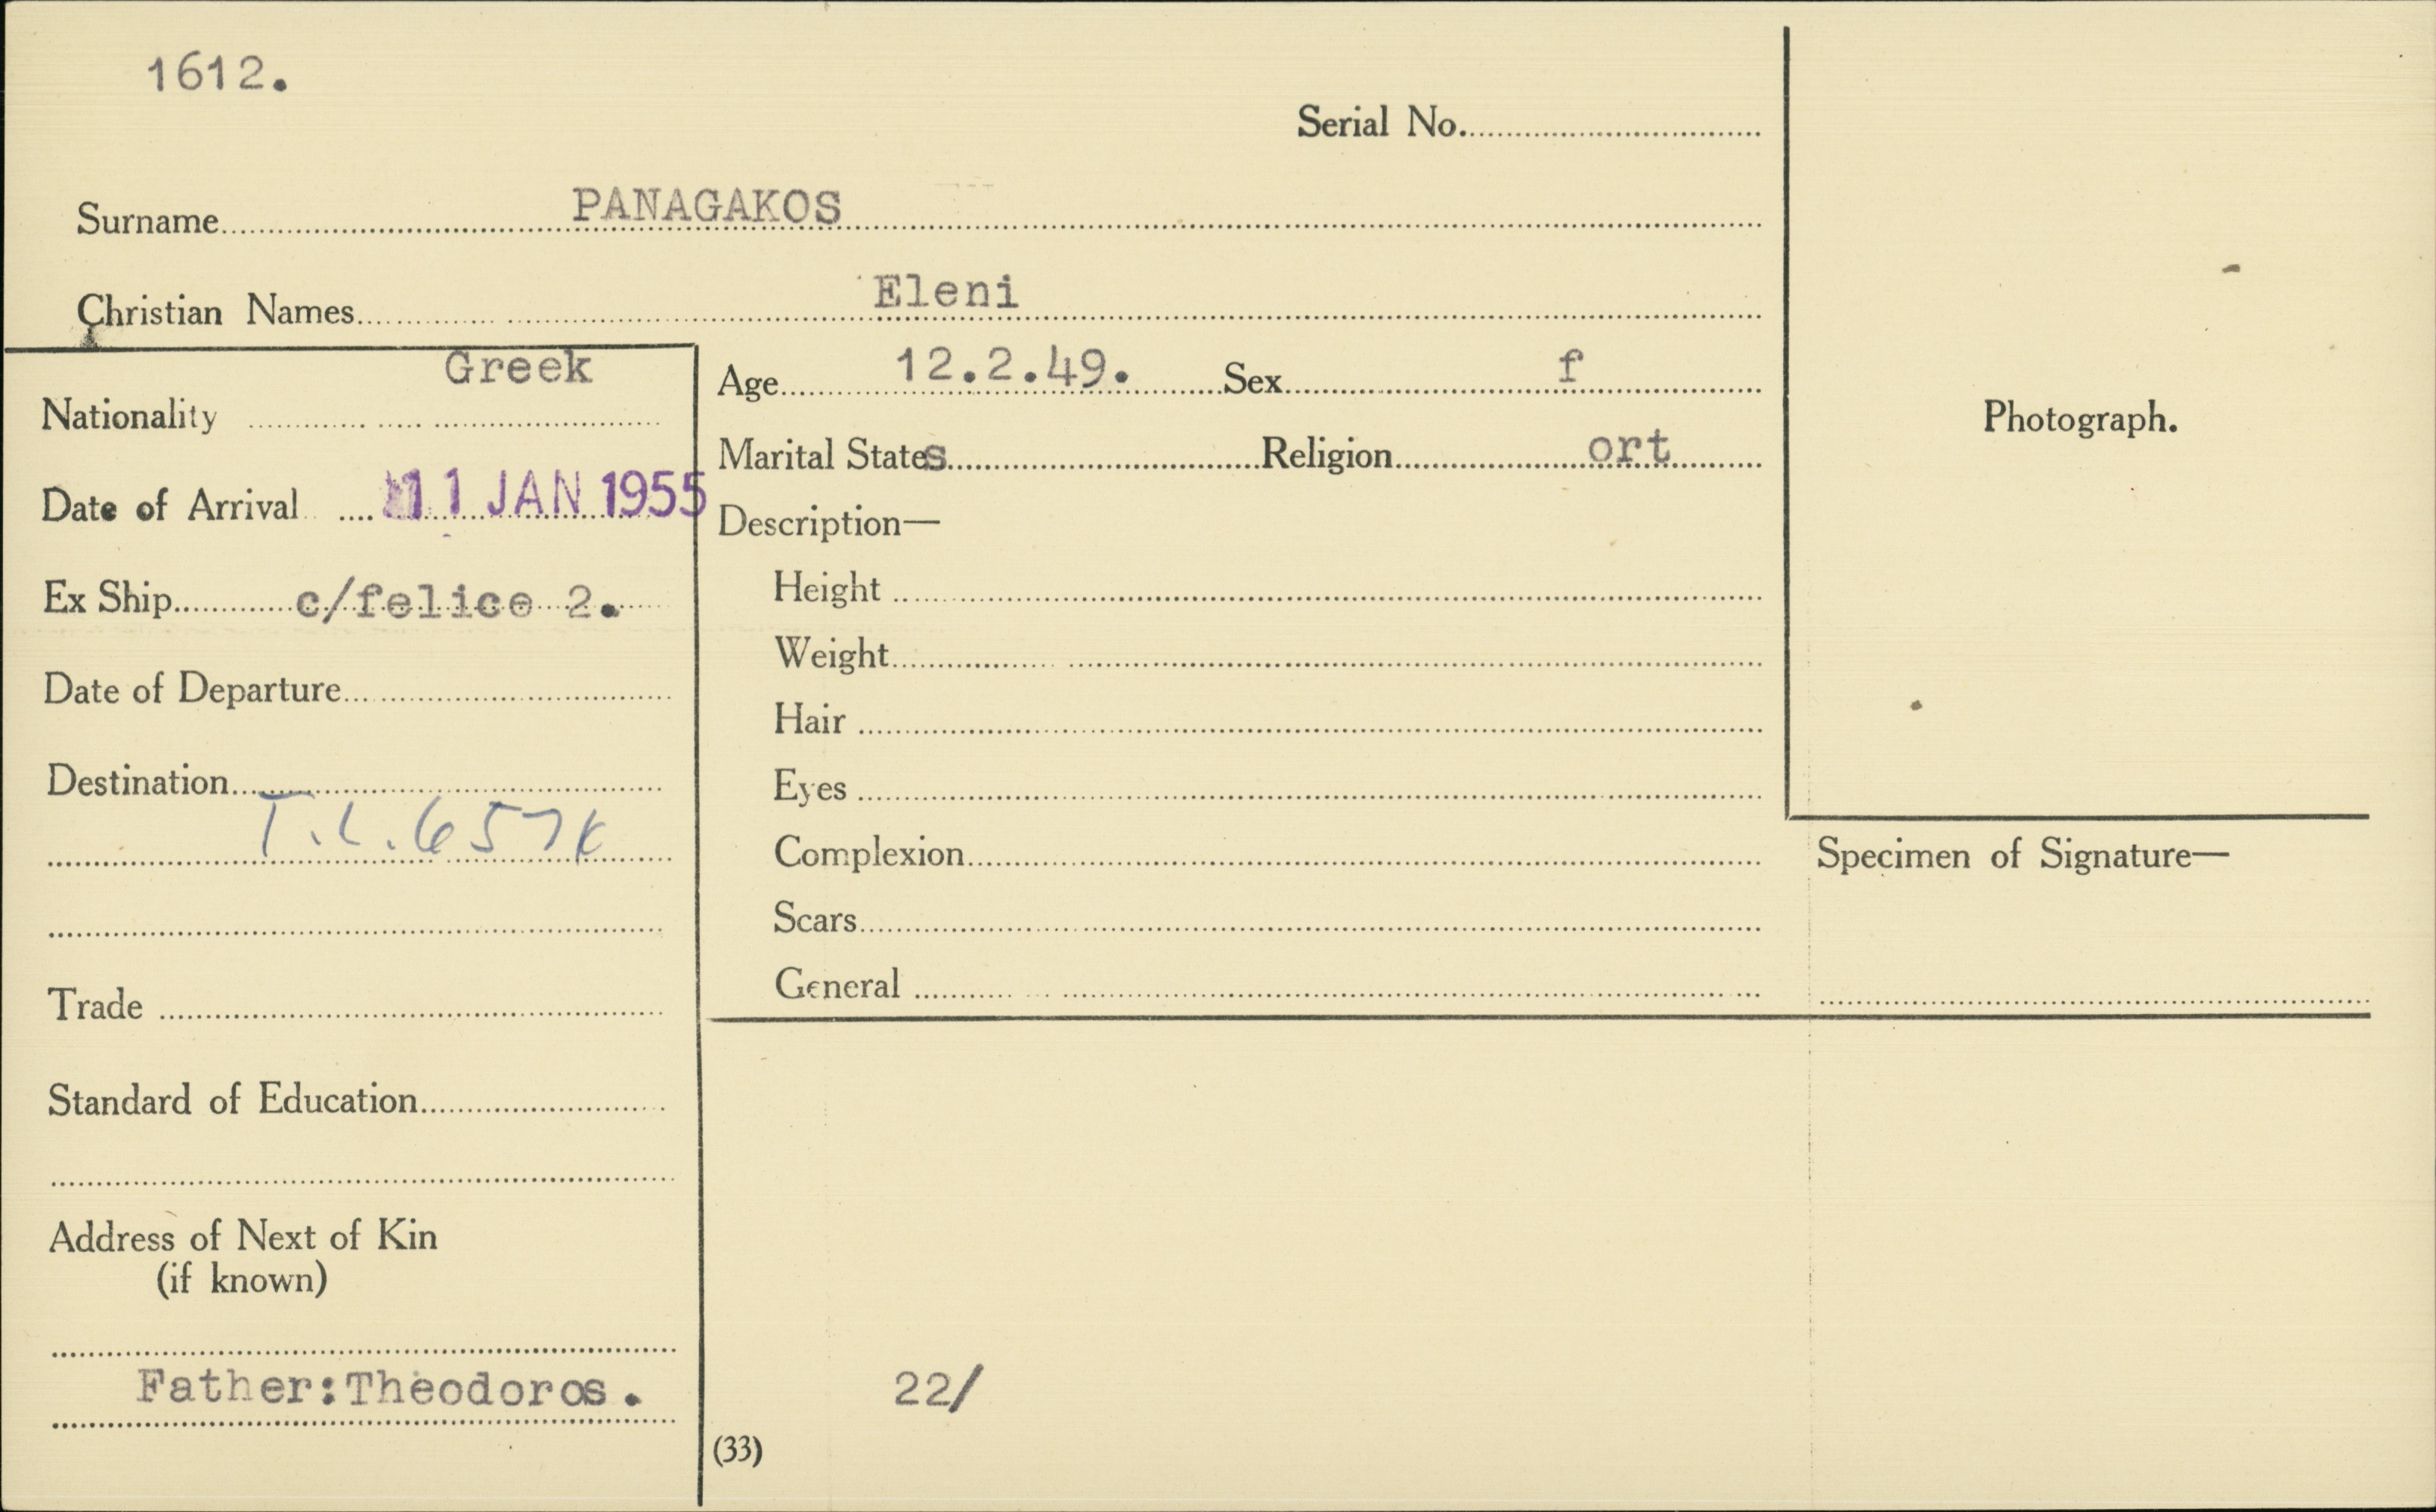 1612.
Serial No.
Surname PANAGAKOS
Christian Names Eleni
Nationality Greek
Date of Arrival 11 JAN 1955
Ex Ship c/felice 2.
Date of Departure
Destination
T.L.657K
Trade
Standard of Education
Address of Next of Kin
(if known)
Father:Theodoros.
Age 12.2.49. Sex f
Marital State s Religion ort
Description—
Height
Weight
Hair
Eyes
Complexion
Scars
General
22/
(33)
Photograph.
Specimen of Signature—